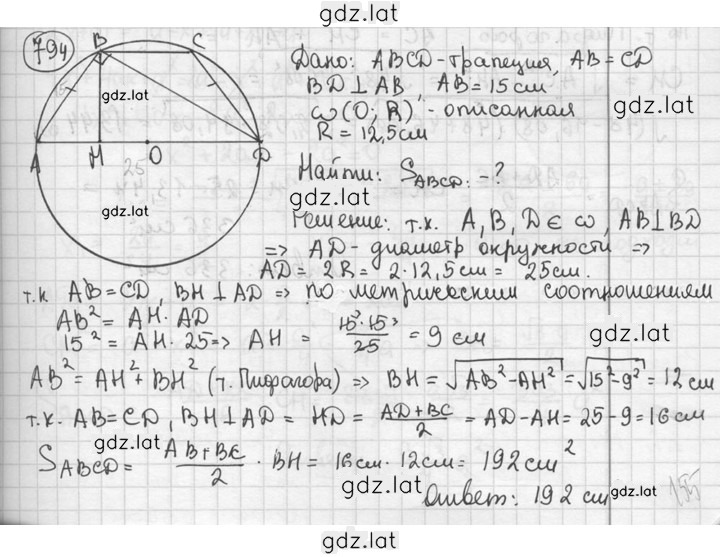 gdz.lat
794
B
C
A
H
O
D
15
25
gdz.lat
gdz.lat
Дано: ABCD-трапеция, AB = CD
BD ⊥ AB, AB = 15 см
gdz.lat
ω(O; R) - описанная
R = 12,5 см
Найти: S_ABCD: -?
gdz.lat
Решение: т.к. A, B, D ∈ ω, AB ⊥ BD
=> AD - диаметр окружности =>
AD = 2R = 2·12,5 см = 25 см.
т.к AB = CD, BH ⊥ AD => по метрическим соотношениям
AB² = AH · AD
15² = AH · 25 => AH = 15·15/25 = 9 см
gdz.lat
AB² = AH² + BH² (т. Пифагора) => BH = √AB² - AH² = √15² - 9² = 12 см
т.к. AB = CD, BH ⊥ AD = HD = AD + BC/2 = AD - AH = 25 - 9 = 16 см
gdz.lat
S_ABCD = AB + BC/2 · BH = 16 см · 12 см = 192 см²
gdz.lat
Ответ: 192 см
gdz.lat
gdz.lat